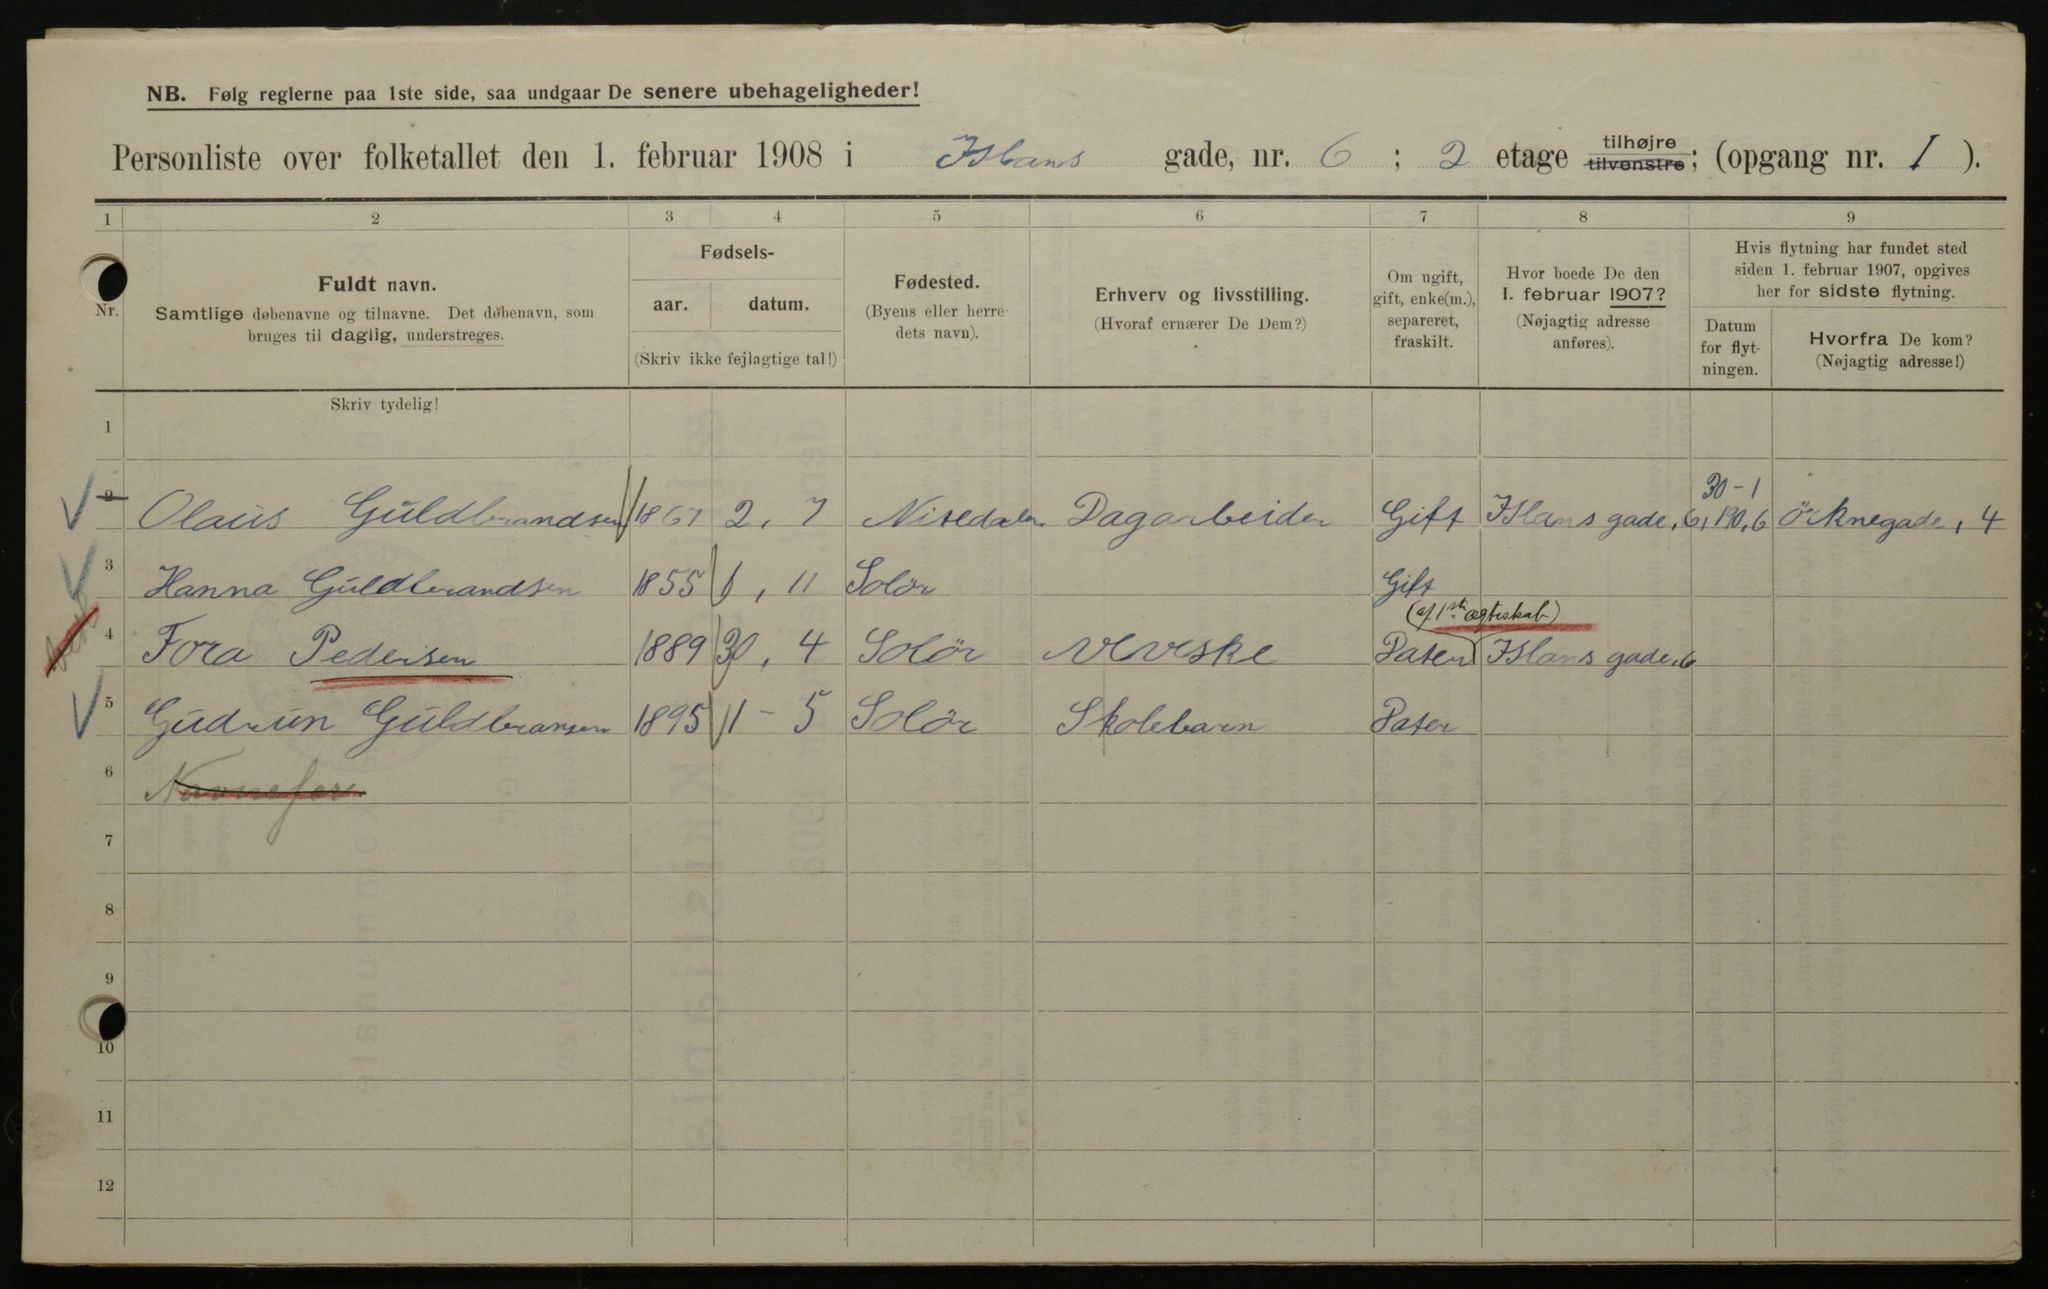 NB. Følg reglerne paa 1ste side, saa undgaar De senere ubehageligheder!
Personliste over folketallet den 1. februar 1908 i Islans gade, nr. 6 ; 2 etage tilhøjre tilvenstre; (opgang nr. 1 ).
1 2 3 4 5 6 7 8 9
Nr.
Fuldt navn.
Samtlige døbenavne og tilnavne. Det døbenavn, som
bruges til daglig, understreges.
Fødsels-
aar. datum.
(Skriv ikke fejlagtige tal!)
Fødested.
(Byens eller herre-
dets navn).
Erhverv og livsstilling.
(Hvoraf ernærer De Dem?)
Om ugift,
gift, enke(m.),
separeret,
fraskilt.
Hvor boede De den
1. februar 1907?
(Nøjagtig adresse
anføres).
Hvis flytning har fundet sted
siden 1. februar 1907, opgives
her for sidste flytning.
Datum
for flyt-
ningen.
Hvorfra De kom?
(Nøjagtig adresse!)
Skriv tydelig!
1
30-1
2 Olaus Guldbrandsen 1867 2, 7 Nitedalen Dagarbeider Gift Islans gade, 6, 190,6 Örknegade, 4
3 Hanna Guldbrandsen 1855 6, 11 Solör Gift
(af 1ste ægteskab)
4 Tora Pedersen 1889 30, 4 Solör Veveske Pater Islans gade, 6
5 Gudrun Guldbransen 1895 11 - 5 Solör Skolebarn Pater
6
7
8
9
10
11
12